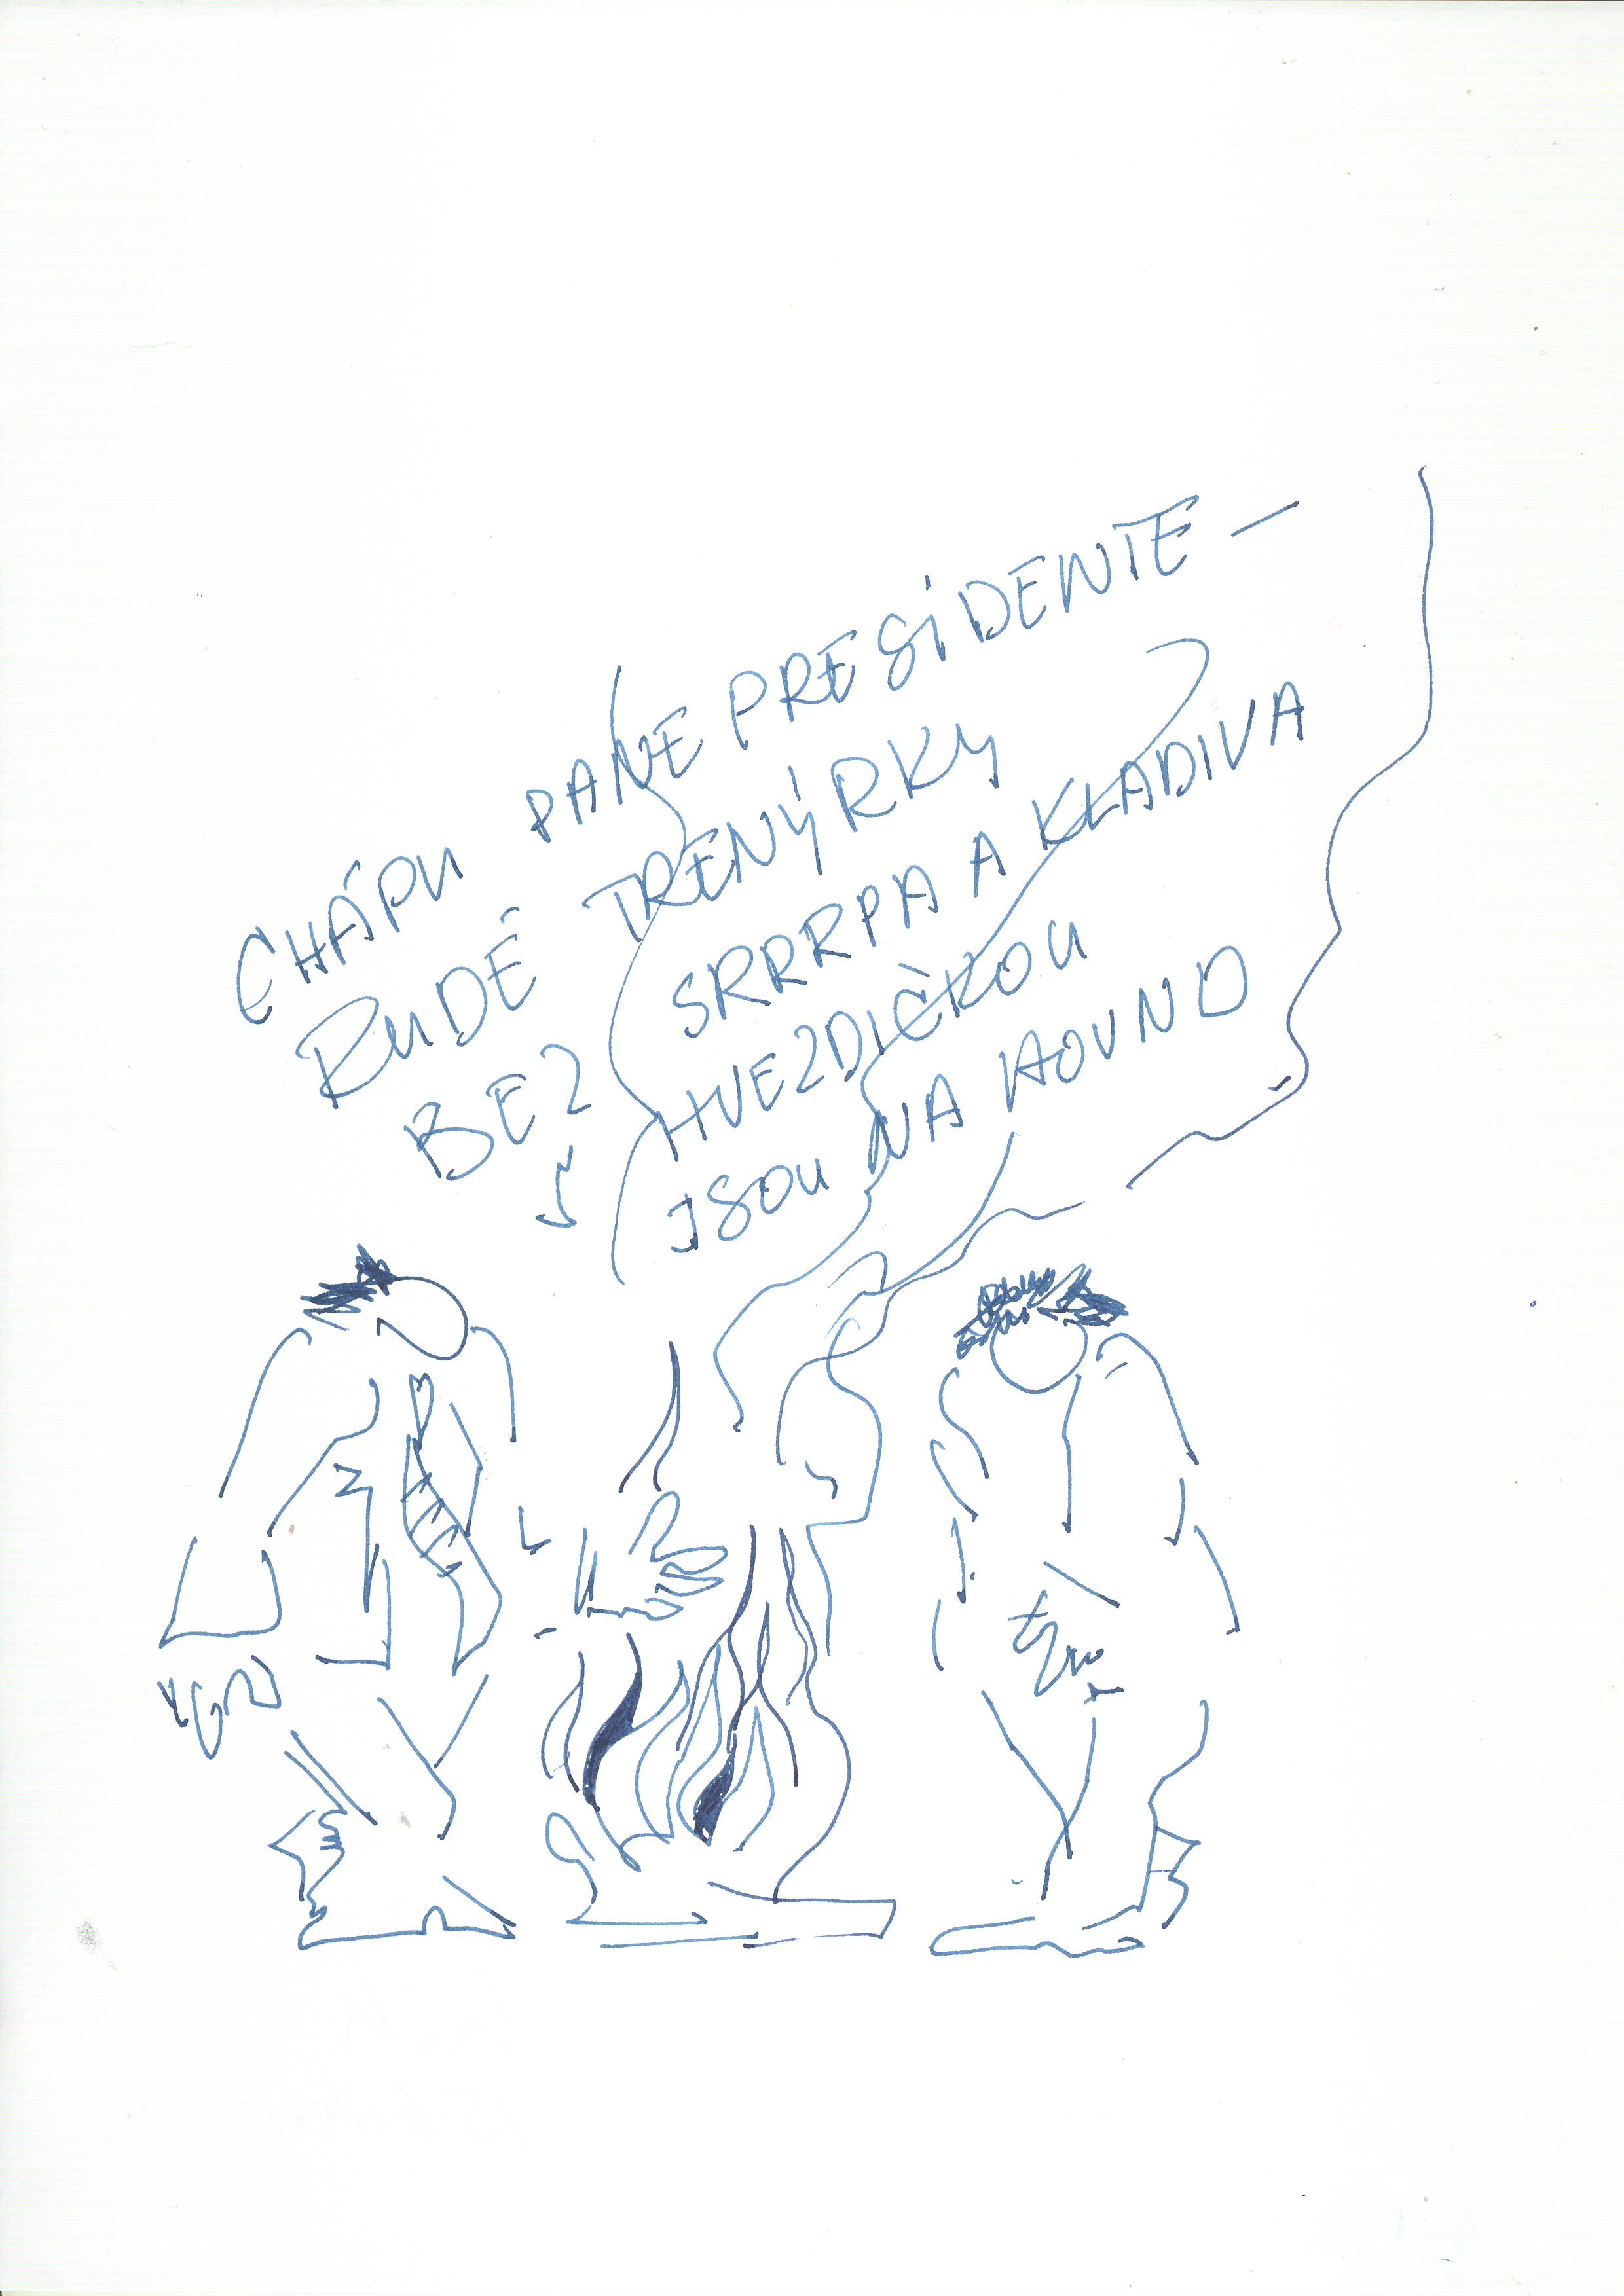 CHÁPU PANE PRESIDENTE –
RUDÉ TRENÝRKY
BEZ SRRRPA A KLADIVA
S HVEZDIČKOU
JSOU NA HOVNO